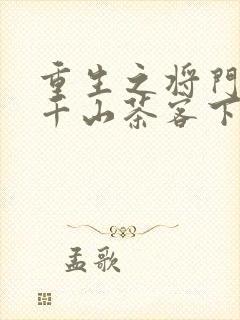 重生之将门
千山茶客下
孟歌